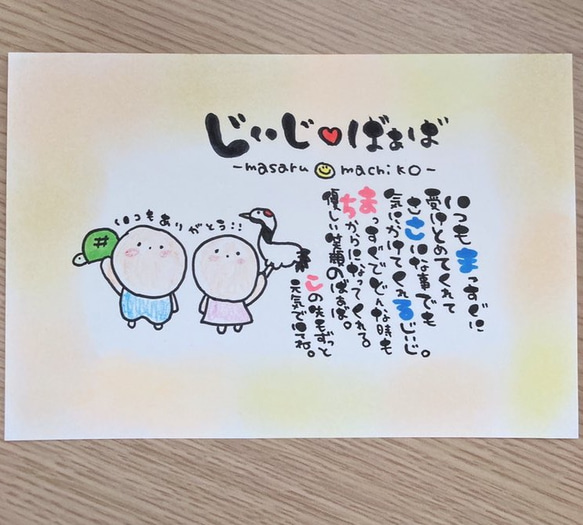 じぃじ♥ばぁば
-masaru machiko-
いつもありがとう!!
いつもまっすぐに
受けとめてくれて
ささいな事でも
気にかけてくれるじぃじ。
まっすぐでどんな時も
ちからになってくれる。
優しい笑顔のばぁば。
この先もずっと
元気でいてね。